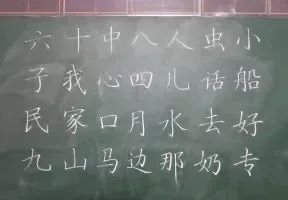 六十中八人虫小
子我心四儿话船
民家口月水去好
九山马边那奶专